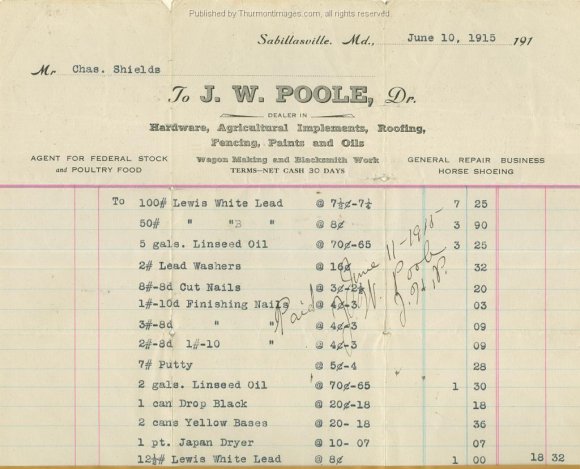 Published by Thurmontimages.com, all rights reserved.
Sabillasville. Md., June 10, 1915 191
Mr Chas. Shields
To J. W. POOLE, Dr.
DEALER IN
Hardware, Agricultural Implements, Roofing,
Fencing, Paints and Oils
AGENT FOR FEDERAL STOCK and POULTRY FOOD
Wagon Making and Blacksmith Work
TERMS—NET CASH 30 DAYS
GENERAL REPAIR BUSINESS
HORSE SHOEING
To 100# Lewis White Lead @ 7½¢-7¼ 7 25
50# " "B " @ 8¢ 3 90
5 gals. Linseed Oil @ 70¢-65 3 25
2# Lead Washers @ 16¢ 32
8#-8d Cut Nails @ 3¢-2½ 20
1#-10d Finishing Nails @ 4¢-3 03
3#-8d " " @ 4¢-3 09
2#-8d 1#-10 " @ 4¢-3 09
7# Putty @ 5¢-4 28
2 gals. Linseed Oil @ 70¢-65 1 30
1 can Drop Black @ 20¢-18 18
2 cans Yellow Bases @ 20- 18 36
1 pt. Japan Dryer @ 10- 07 07
12½# Lewis White Lead @ 8¢ 1 00 18 32
Paid June 11-1915-
J. W. Poole